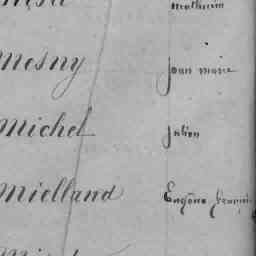 Mathurin
Mesny Jean Marie
Michel Julien
Mielland Eugène François